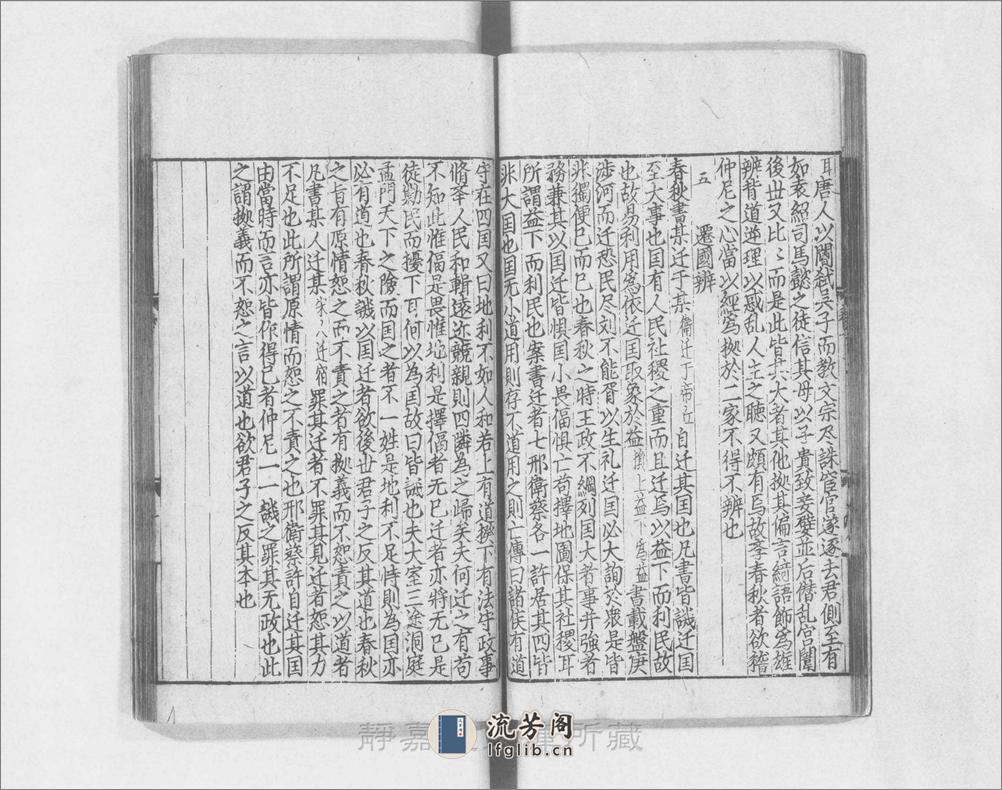 耳唐人以閽弑吴子而教文宗尽誅宦官遂逐去君側至有
如袁紹司馬懿之徒信其母以子貴致妾嬖並后僭乱宫闈
後世又比〻而是此皆其大者其他拠其偏言綺語飾為雄
辨背道逆理以惑乱人主之聴又頗有焉故李春秋者欲稽
仲尼之心當以經為拠於二家不得不辨也
五　遷國辨
春秋書某迁于某衛迁于帝丘自迁其国也凡書皆譏迁国
至大事也国有人民社稷之重而且迁焉以益下而利民故
也故易利用為依迁国取象於益損上益下為益書載盤庚
涉河而迁悉民尽刘不能胥以生礼迁国必大詢於衆是皆
非獨便已而已也春秋之時王政不綱列国大者事并強者
務兼其以国迁皆惧国小畏偪惧亡苟擇地圖保其社稷耳
所謂益下而利民也案書迁者七邢衛蔡各一許居其四皆
非大国也国无小道用則存不道用之則亡傳曰諸侯有道
守在四国又曰地利不如人和若上有道揆下有法守政事
脩举人民和輯遠近競親則四隣為之歸矣夫何迁之有苟
不知此惟偪是畏惟地利是擇偪者无已迁者亦將无已是
徒勤民而擾下可何以為国故曰皆譏也夫大室三途洞庭
孟門天下之險而国之者不一姓是地利不足恃則為国亦
必有道也春秋譏以国迁者欲後世君子之反其道也春秋
之旨有原情恕之而不責之者有拠義而不恕責之以道者
凡書某人迁某宋人迁宿罪其迁者不罪其見迁者恕其力
不足也此所謂原情而恕之不責之也邢衛蔡許自迁其国
由當時而言亦皆作得已者仲尼一一譏之罪其无政也此
之謂拠義而不恕之言以道也欲君子之反其本也
流芳阁
lfglib.cn
静嘉
所藏